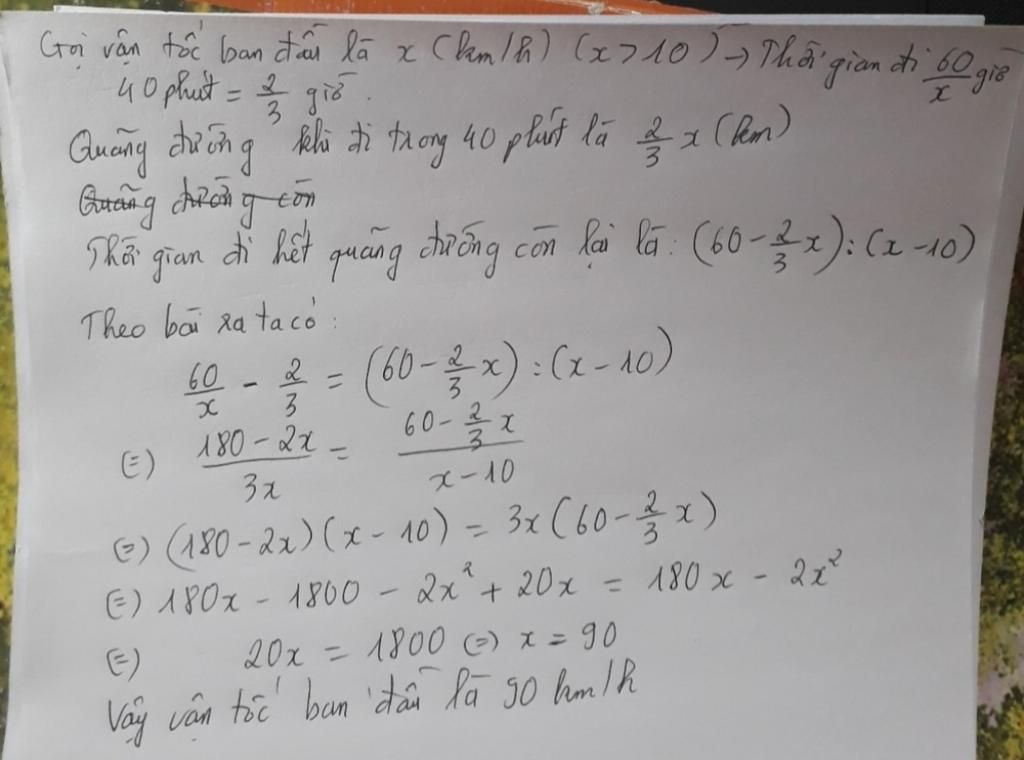 Gọi vận tốc ban đầu là x (km/h) (x > 10) → Thời gian đi 60/x giờ
40 phút = 2/3 giờ.
Quãng đường khi đi trong 40 phút là 2/3 x (km)
Quãng đường còn
Thời gian đi hết quãng đường còn lại là: (60 - 2/3 x) : (x - 10)
Theo bài ra ta có :
60/x - 2/3 = (60 - 2/3 x) : (x - 10)
(=) (180 - 2x)/(3x) = (60 - 2/3 x)/(x - 10)
(=) (180 - 2x) (x - 10) = 3x (60 - 2/3 x)
(=) 180x - 1800 - 2x² + 20x = 180x - 2x²
(=) 20x = 1800 (=) x = 90
Vậy vận tốc ban đầu là 90 km/h